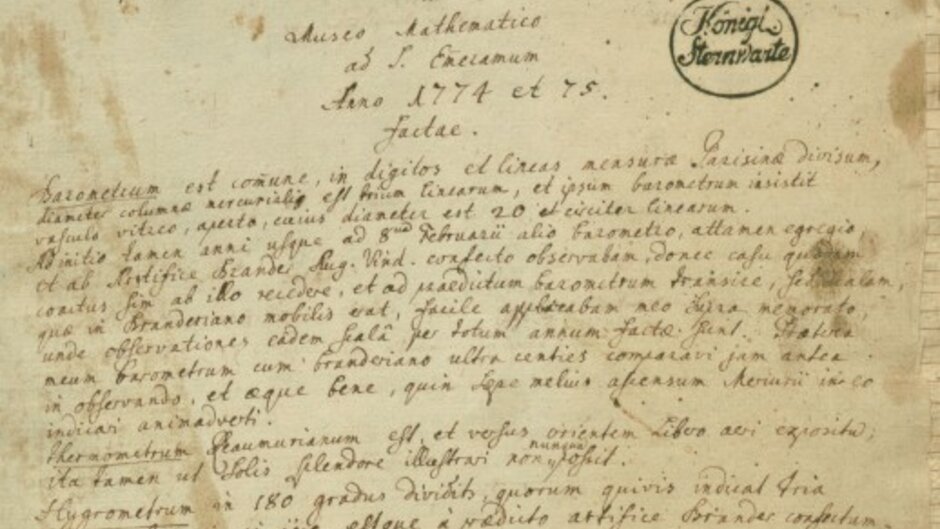 Museo Mathematico
ad S. Emeramum
Anno 1774 et 75.
factae.
Königl.
Sternwarte
Barometrum est com̄une, in digitos et lineas mensuræ Parisinæ divisum,
diameter columnæ mercurialis est trium linearum, et ipsum barometrum insistit
vasculo vitreo, aperto, cujus diameter est 20 et circiter linearum.
Ab initio tamen anni usque ad 8vum Februarii alio barometro, attamen egregio,
et ab Artifice Brander Aug. Vind. confecto observabam, donec casu quodam
coactus sim ab illo recedere, et ad prædictum barometrum transire, sed scalam,
quæ in Branderiano mobilis erat, facile applicabam meo supra memorato,
unde observationes eadem scalâ per totum annum factæ sunt. Præterea
meum barometrum cum branderiano ultra centies comparavi jam antea
in observando, et æque bene, quin sæpe melius ascensum Mercurii in eo
indicari animadverti.
Thermometrum Reaumurianum est, et versus orientem libero aeri expositū,
ita tamen ut Solis splendore illustrari non nunquam possit.
Hygrometrum in 180 gradus dividitur, quorum quivis indicat tria
estque à prædicto artifice Brander confectum